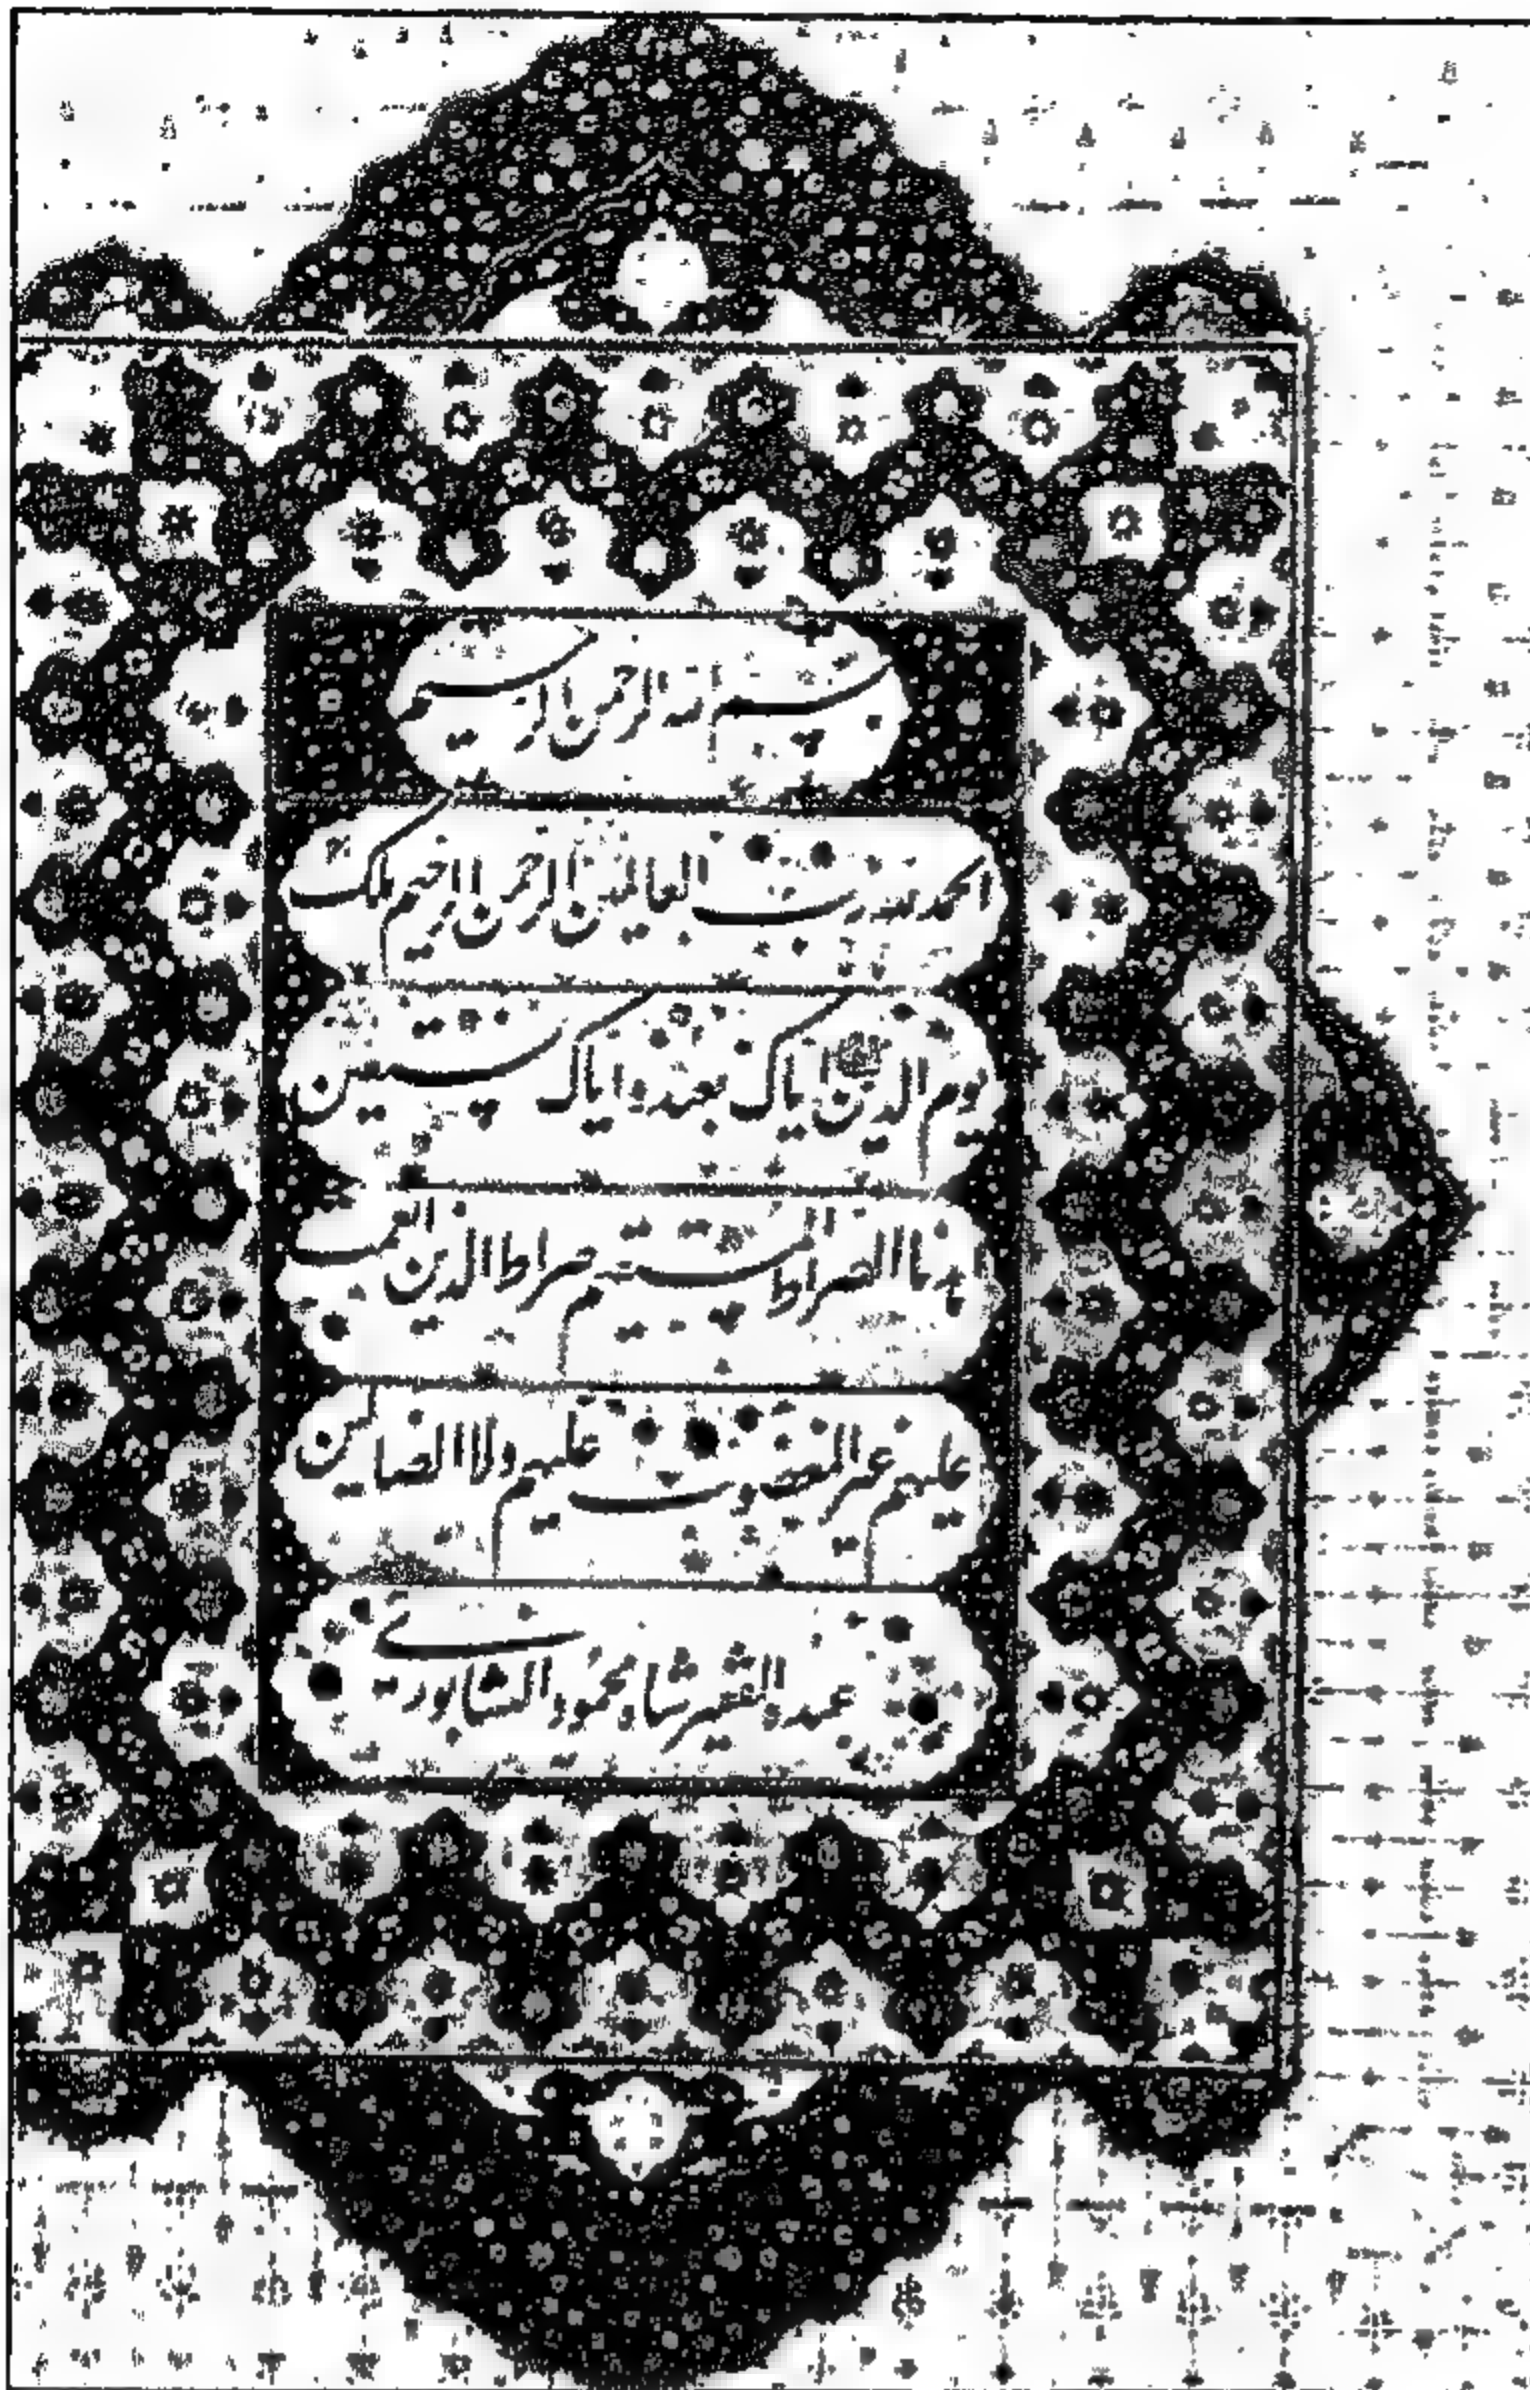 بسم الله الرحمن الرحيم
الحمد لله رب العالمين الرحمن الرحيم ملك
يوم الدين اياك نعبد و اياك نستعين
اهدنا الصراط المستقيم صراط الذين انعمت
عليهم غير المغضوب عليهم ولا الضالين
عبده الفقير شاه محمود النيشابوري